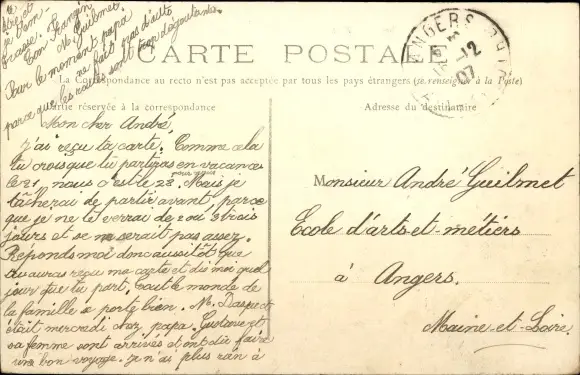 CARTE POSTALE
La Correspondance au recto n'est pas acceptée par tous les pays étrangers (se renseigner à la Poste)
Partie réservée à la correspondance
Adresse du destinataire
Mon cher André,
J'ai reçu ta carte. Comme cela
tu crois que tu partiras en vacances
le 21 nous c'est le 28. Mais je
pour nous
tâcherai de partir avant, parce
que je ne te verrai de 2 ou 3 trois
jours et se ne serait pas assez.
Réponds moi donc aussitôt que
tu auras reçu ma carte et dis moi quel
jour que tu part. Tout le monde de
la famille se porte bien. M.
était mercredi chez papa. Gustave et
sa femme sont arrivés et ont dû faire
un bon voyage. Je n'ai plus rien à
te
je t'em-
brasse. Ton frangin
M. Guilmet.
Pour le moment papa
ne fait pas d'auto
parce que les routes sont trop dégoutantes.
ANGERS
12
07
Monsieur André Guilmet
Ecole d'arts-et-métiers
à Angers.
Maine-et-Loire.